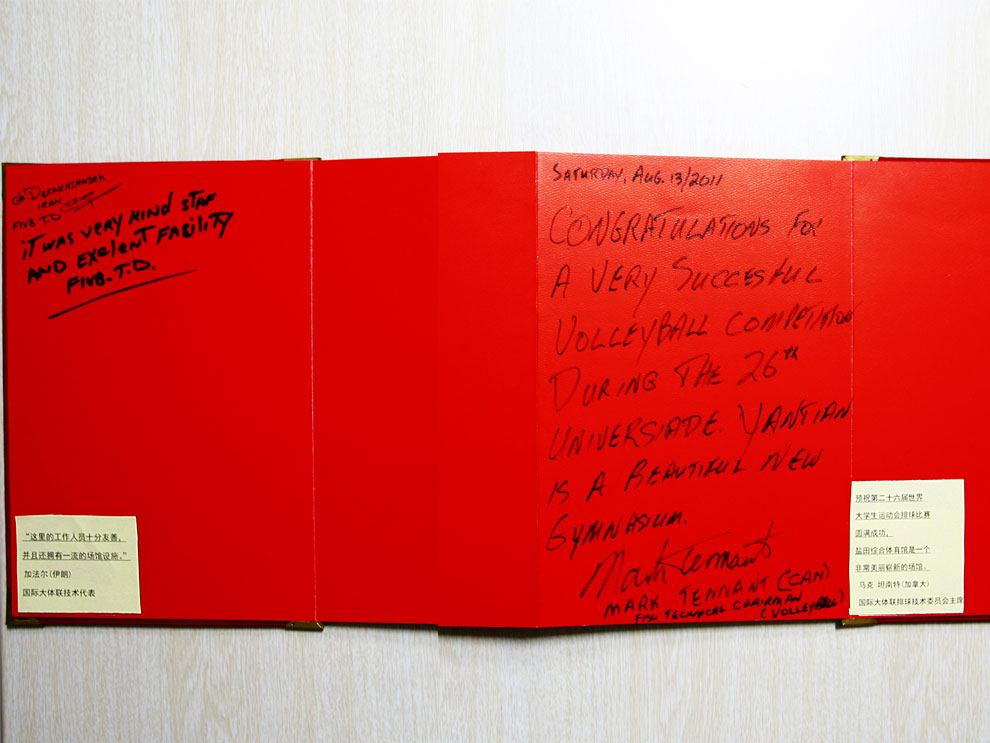 Gh Derakhshandeh
IRAN
FIVB T.D
iT WAS VERY KIND STAF
AND EXelENT FACILITY
FIVB. T.D.
"这里的工作人员十分友善,
并且还拥有一流的场馆设施。"
加法尔(伊朗)
国际大体联技术代表
SATURDAY, AUG. 13/2011
CONGRATULATIONS FOR
A VERY SUCCESFUL
VOLLEYBALL COMPETITION
DURING THE 26TH
UNIVERSIADE. YANTIAN
IS A BEAUTIFUL NEW
GYMNASIUM.
Mark Tennant
MARK TENNANT (CAN)
FISU TECHNICAL CHAIRMAN
(VOLLEYBALL)
预祝第二十六届世界
大学生运动会排球比赛
圆满成功。
盐田综合体育馆是一个
非常美丽崭新的场馆。
马克 坦南特(加拿大)
国际大体联排球技术委员会主席